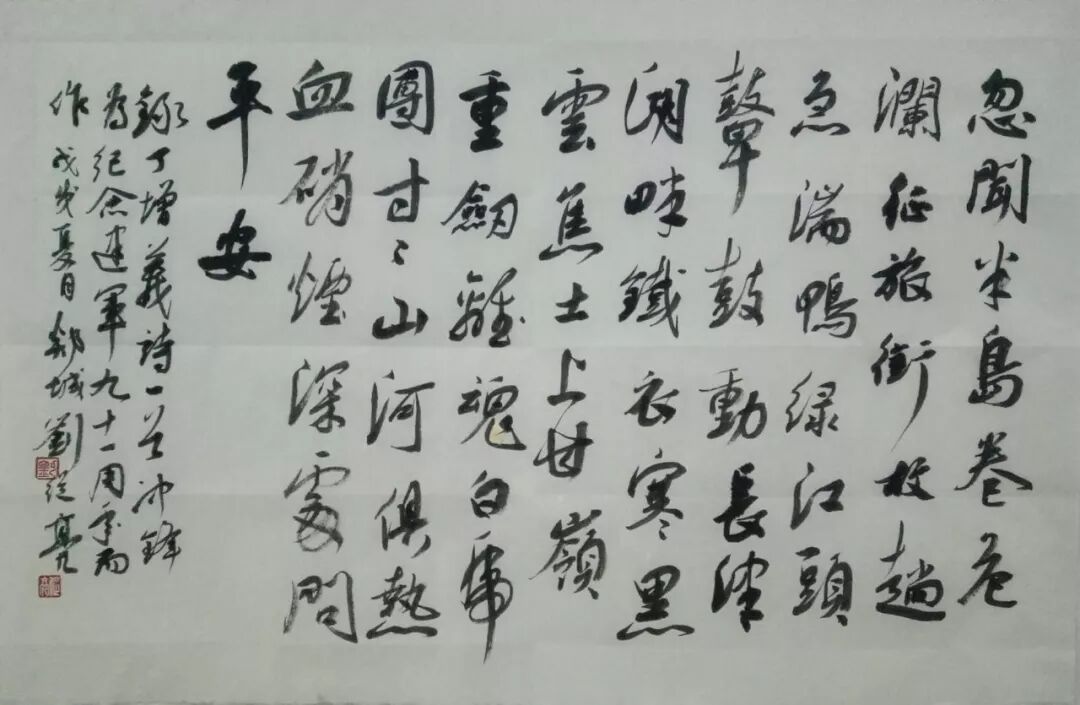 忽聞半島卷危
瀾征旅銜枚趟
急湍鴨綠江頭
鼙鼓動長津
湖畔鐵衣寒黑
雲焦土上甘嶺
重劍離魂白虎
團寸〻山河俱熱
血硝煙深處問
平安
錄丁增義詩一首冲鋒
為紀念建軍九十一周年而
作 戊戌夏日 郯城劉從亮